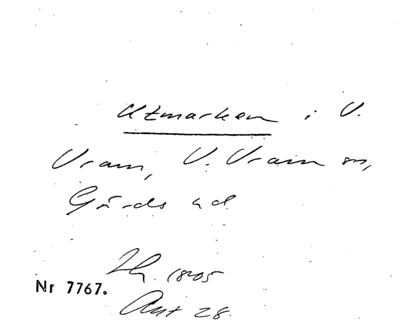 Utmarken i V.
Vram, V. Vram sn,
Gärds hd
Nr 7767.
Lh. 1805
Akt 28.